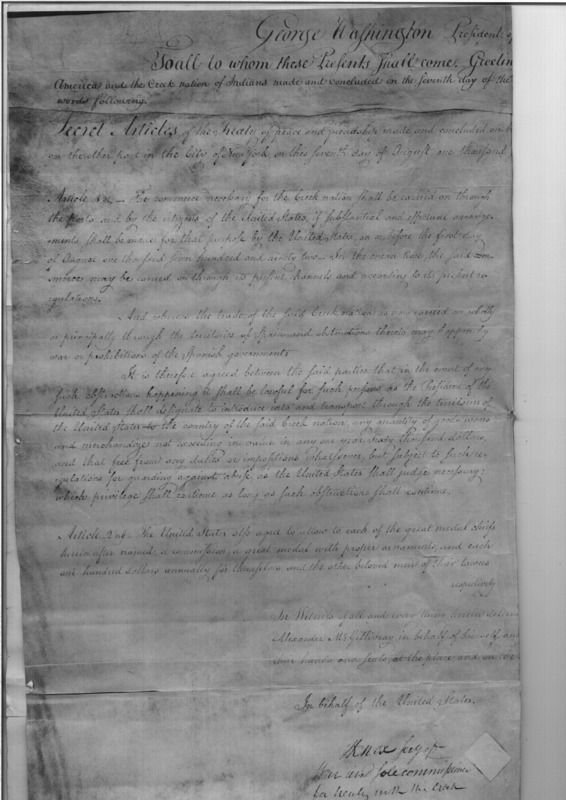 George Washington President of
To all to whom these Presents shall come, Greetin
America and the Creek nation of Indians made and concluded on the seventh day of the
words following.
Secret Articles of the Treaty of peace and friendship made and concluded on
on the other part in the City of New York on this seventh day of August one thousand
Article 1st — The commerce necessary for the Creek nation shall be carried on through
the ports, and by the citizens of the United States, if substantial and effectual arrange-
ments shall be made for that purpose by the United States, on or before the first day
of August one thousand seven hundred and ninety two — In the mean time, the said com-
merce may be carried on through its present channels and according to its present re-
gulations.
And whereas the trade of the said Creek nation is now carried on wholly
or principally through the territories of Spain and obstructions thereto may happen by
war or prohibitions of the Spanish government.
It is therefore agreed between the said parties that in the event of any
such obstructions happening it shall be lawful for such persons as the President of the
United States shall designate to introduce into and transport through the territories of
the United States to the country of the said Creek nation, any quantity of goods wares
and merchandize not exceeding in value in any one year sixty thousand dollars,
and that free from any duties or impositions whatsoever, but subject to such re-
gulations for guarding against abuse, as the United States shall judge necessary;
which privilege shall continue as long as such obstructions shall continue.
Article 2nd — The United States also agree to allow to each of the great medal chiefs
herein after named, a commission, a great medal with proper ornaments, and each
one hundred dollars annually for themselves and the other beloved men of their towns
respectively
In Witness of all and every thing herein determ
Alexander McGillivray in behalf of himself and
their hands and seals, at the place and on the
In behalf of the United States.
HKnox Secy of
War and Sole commissioner
for treaty with the Creek